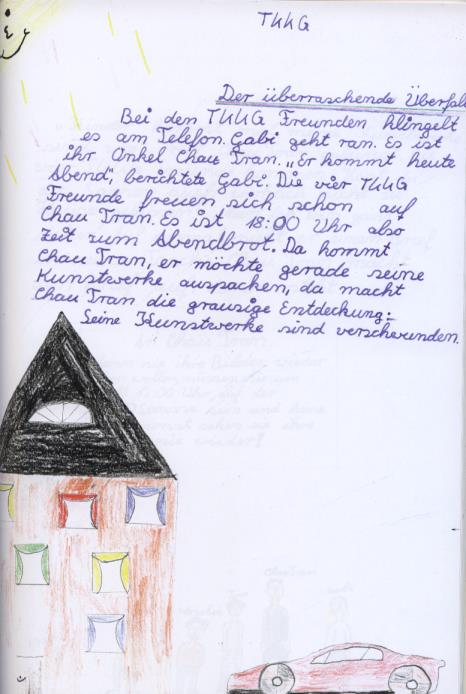 TKKG
Der überraschende Überfal
Bei den TKKG Freunden klingelt
es am Telefon. Gabi geht ran. Es ist
ihr Onkel Chau Tran. „Er kommt heute
Abend", berichtete Gabi. Die vier TKKG
Freunde freuen sich schon auf
Chau Tran. Es ist 18:00 Uhr also
Zeit zum Abendbrot. Da kommt
Chau Tran, er möchte gerade seine
Kunstwerke auspacken, da macht
Chau Tran die grausige Entdeckung:
Seine Kunstwerke sind verschwunden.